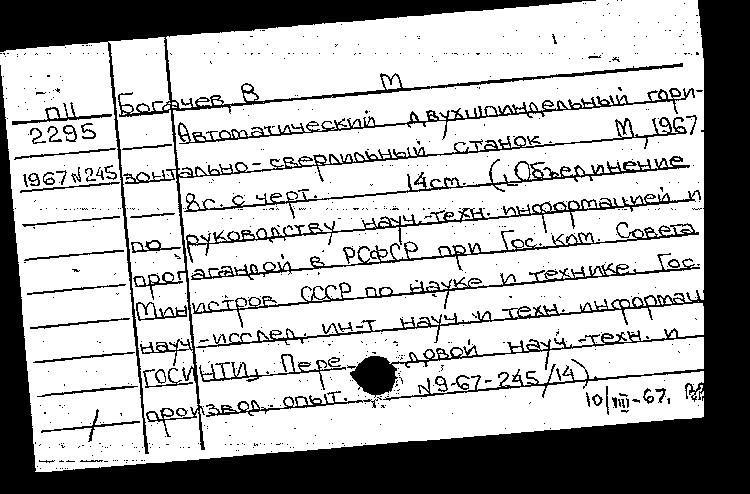 М
П11 Богачев, В
2295 Автоматический двухшпиндельный гори-
1967 N245 зонтально-сверлильный станок. М., 1967.
8с. с черт. 14см. (,Объединение
по руководству науч.-техн. информацией и
пропагандой в РСФСР при Гос. ком. Совета
Министров СССР по науке и технике. Гос.
науч.-исслед. ин-т науч. и техн. информац
ГОСИНТИ„. Передовой науч.-техн. и
производ. опыт. N9-67-245/14).
10/VIII-67.